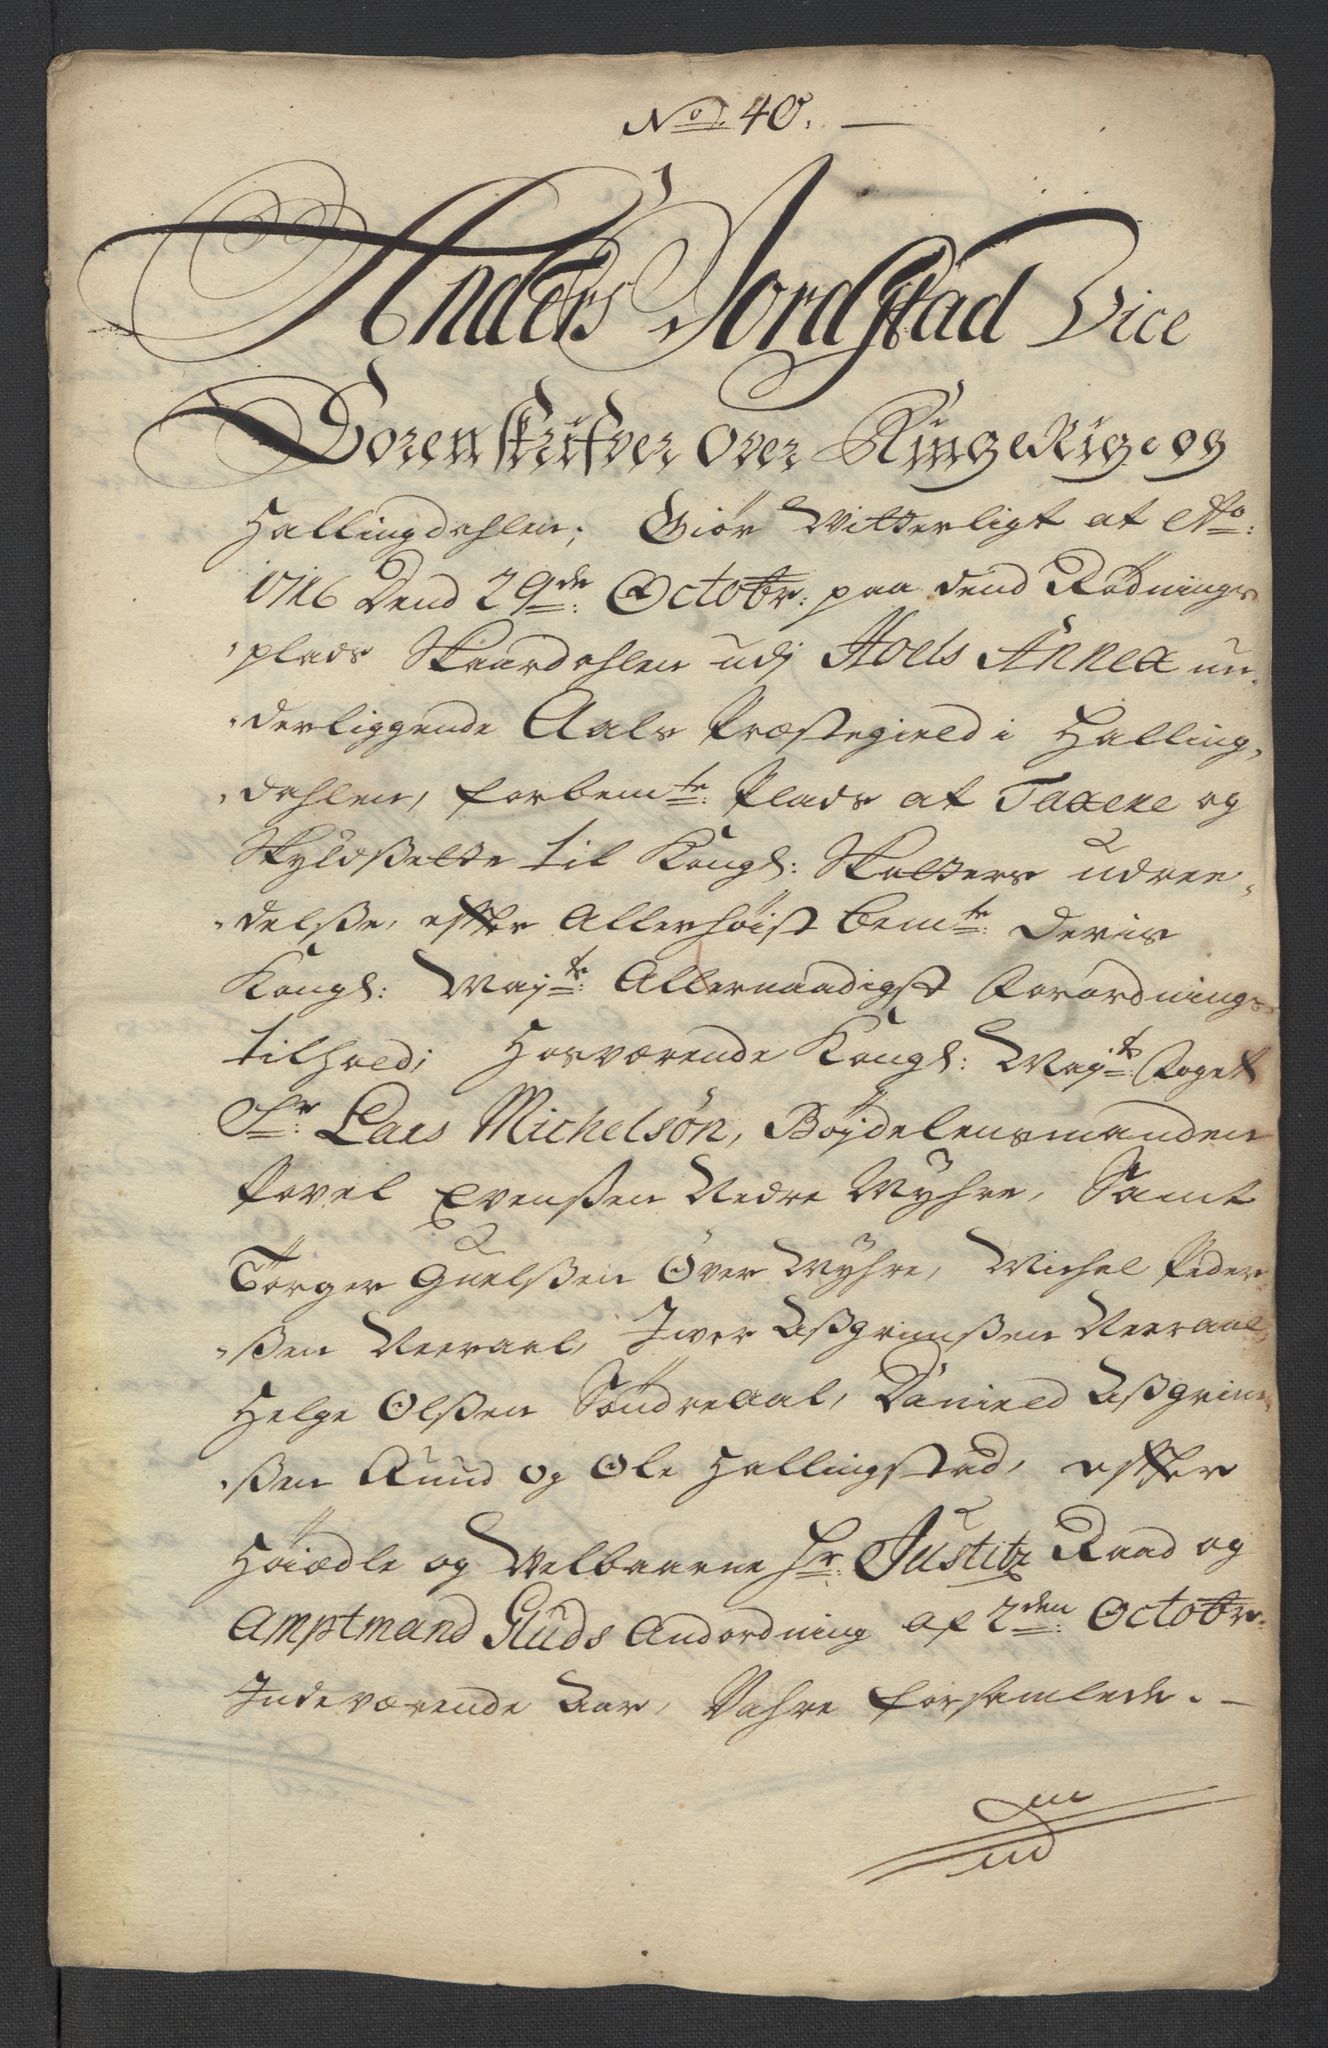 No. 40.
Anders Jordstad Vice
Sorenskrifver over Ringerige og
Hallingdahlen; Giör Vitterligt at Ao:
1716 Dend 29de: Octobr: paa dend Rödnings
plads Skaardahlen udj Hoels Annex un-
derliggende Aals Præstegield i Halling,
dahlen, forbemte: Plads at Taxere og
Skyldsette til Kongl: Skatters udree-
delse, efter Allerhöist bemte: Deris
Kongl: Majts: Allernaadigst Forordnings
tilhold; Hosværende Kongl: Majts: Foget
Sr: Lars Michelsön, Böjdelensmanden
Povel Evenßen Nedre Myhre, Samt
Törger Guelßen Över Myhre, Michel Peder
ßen Neeraal, Iver Aßgrimßen Neeraal,
Helge Olßen Söndreaal, Danield Aßgrim
ßen Ruud og Ole Hallingstad, efter
Höiædle og Velbaarne Hr: Justitz Raad og
Amptmand Gluds Andordning af 2den: Octobr:
Indeværende Aar, Vahre forsamlede. -